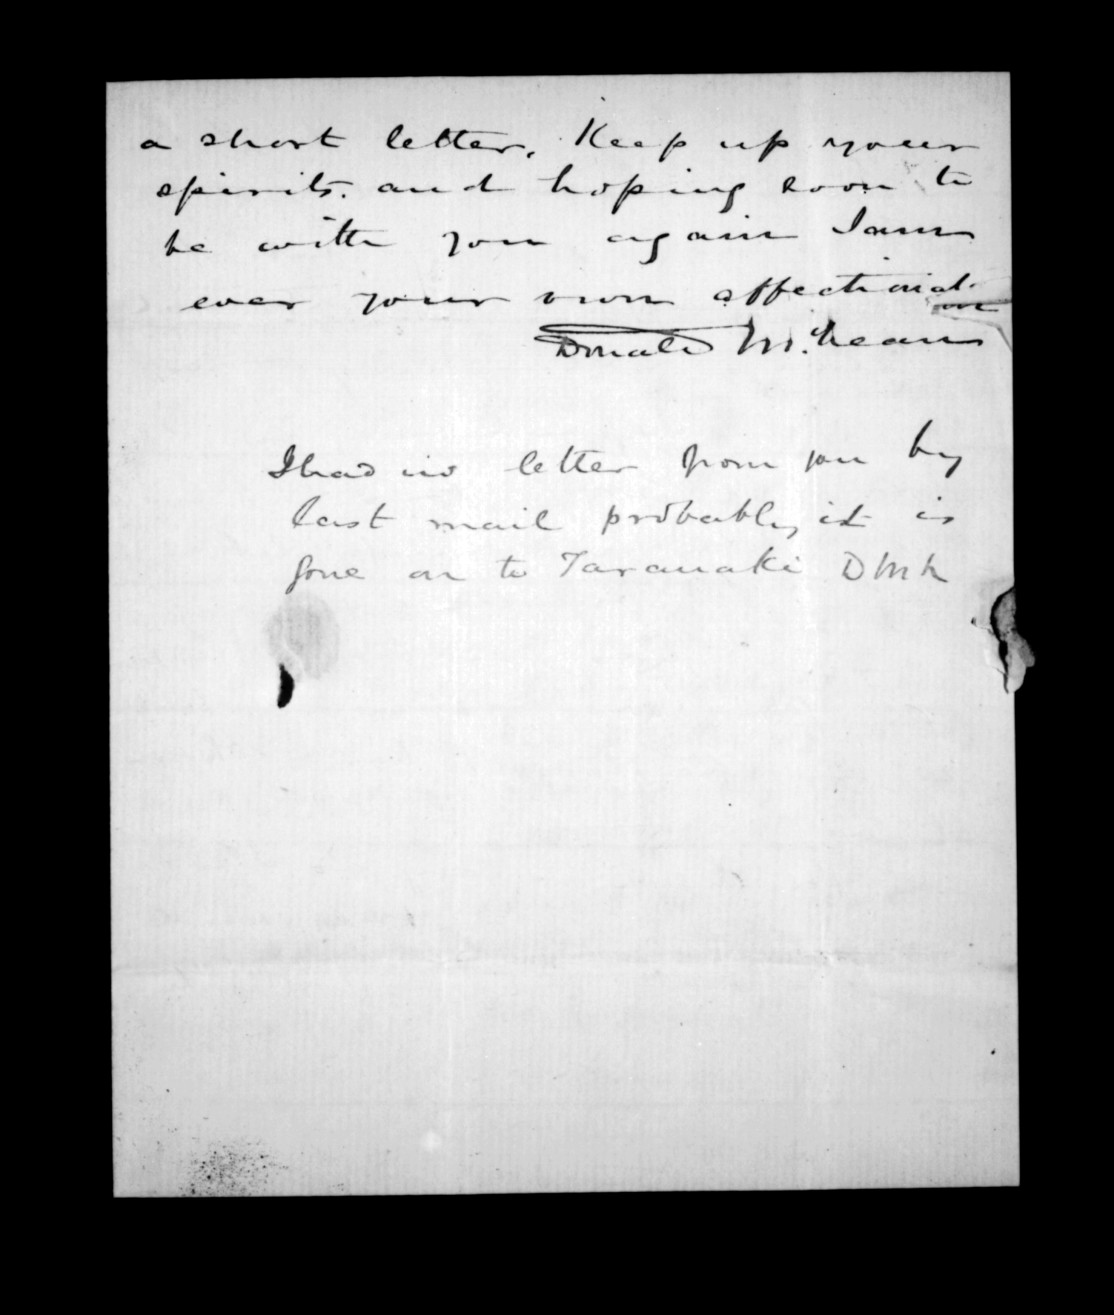 a short letter. Keep up your
spirits. and hoping soon to
be with you again I am
ever your own affectionate
Donald McLean
I had no letter from you by
last mail probably it is
gone on to Taranaki DMcL